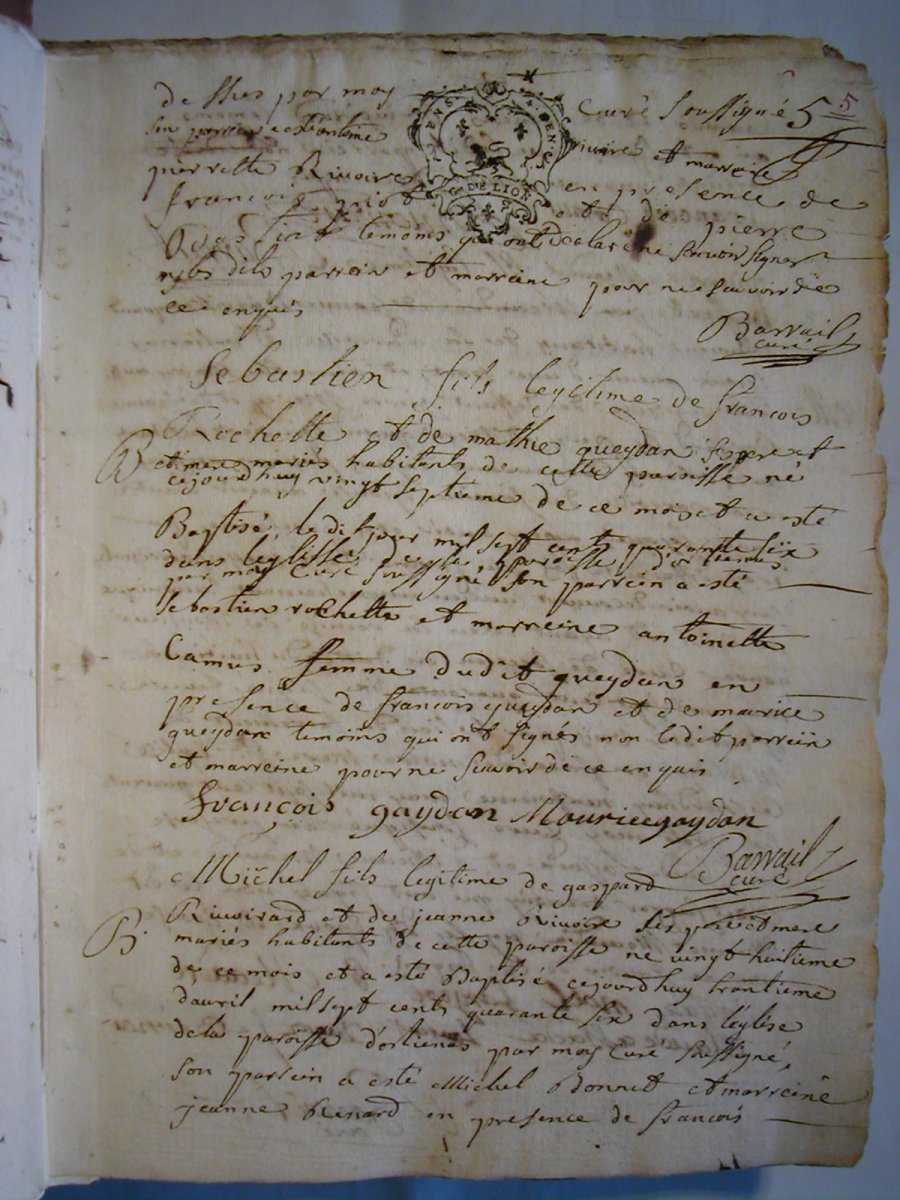 5
de thes par moy Curé soussigné 5
son parrein et Antoine rivoire et marreine
pierrette Rivoire en presence de
francois piot et de pierre
temoins qui ont declaré ne scavoir signer
ny les dits parrein et marreine pour ne scavoir de
ce enquis
GEN. DE LION
Barrail
curé
Sebastien fils legitime de francois
Rochette et de mathie queydan ses pere et
B
et mere mariés habitants de cette paroisse né
cejourdhuy vingt septieme de ce mois et a esté
Baptisé, le dit jour mil sept cents quarante six
dans leglise de la paroisse d'ortienas
par moy Curé soussigné son parrein a esté
sebastien rochette et marreine antoinette
Camus femme dudit queydan en
presence de francois queydan et de maurice
queydan temoins qui ont signés non ledit parrein
et marreine pour ne scavoir de ce enquis
françois gaydan Mouricegaydan
Barrail
curé
Michel fils legitime de gaspard
Rivoirard et de jeanne Rivoire ses pere et mere
B.
mariés habitants de cette paroisse ne vingt huitieme
de ce mois et a esté Baptisé cejourdhuy trantieme
dauril mil sept cents quarante six dans léglise
de la paroisse d'ortienas par moy Curé soussigné,
son parrein a esté Michel Bonnet et marreine
jeanne Renard en presence de francois